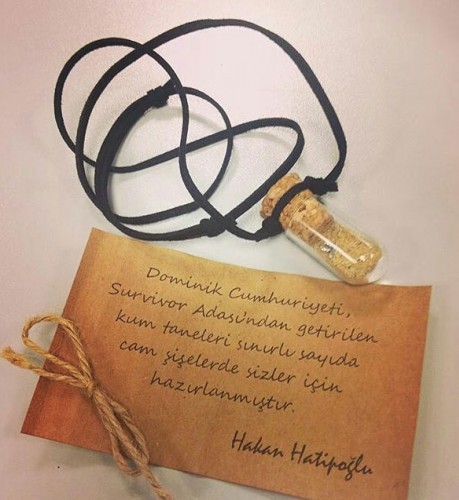 Dominik Cumhuriyeti,
Survivor Adası'ndan getirilen
kum taneleri sınırlı sayıda
cam şişelerde sizler için
hazırlanmıştır.
Hakan Hatipoğlu